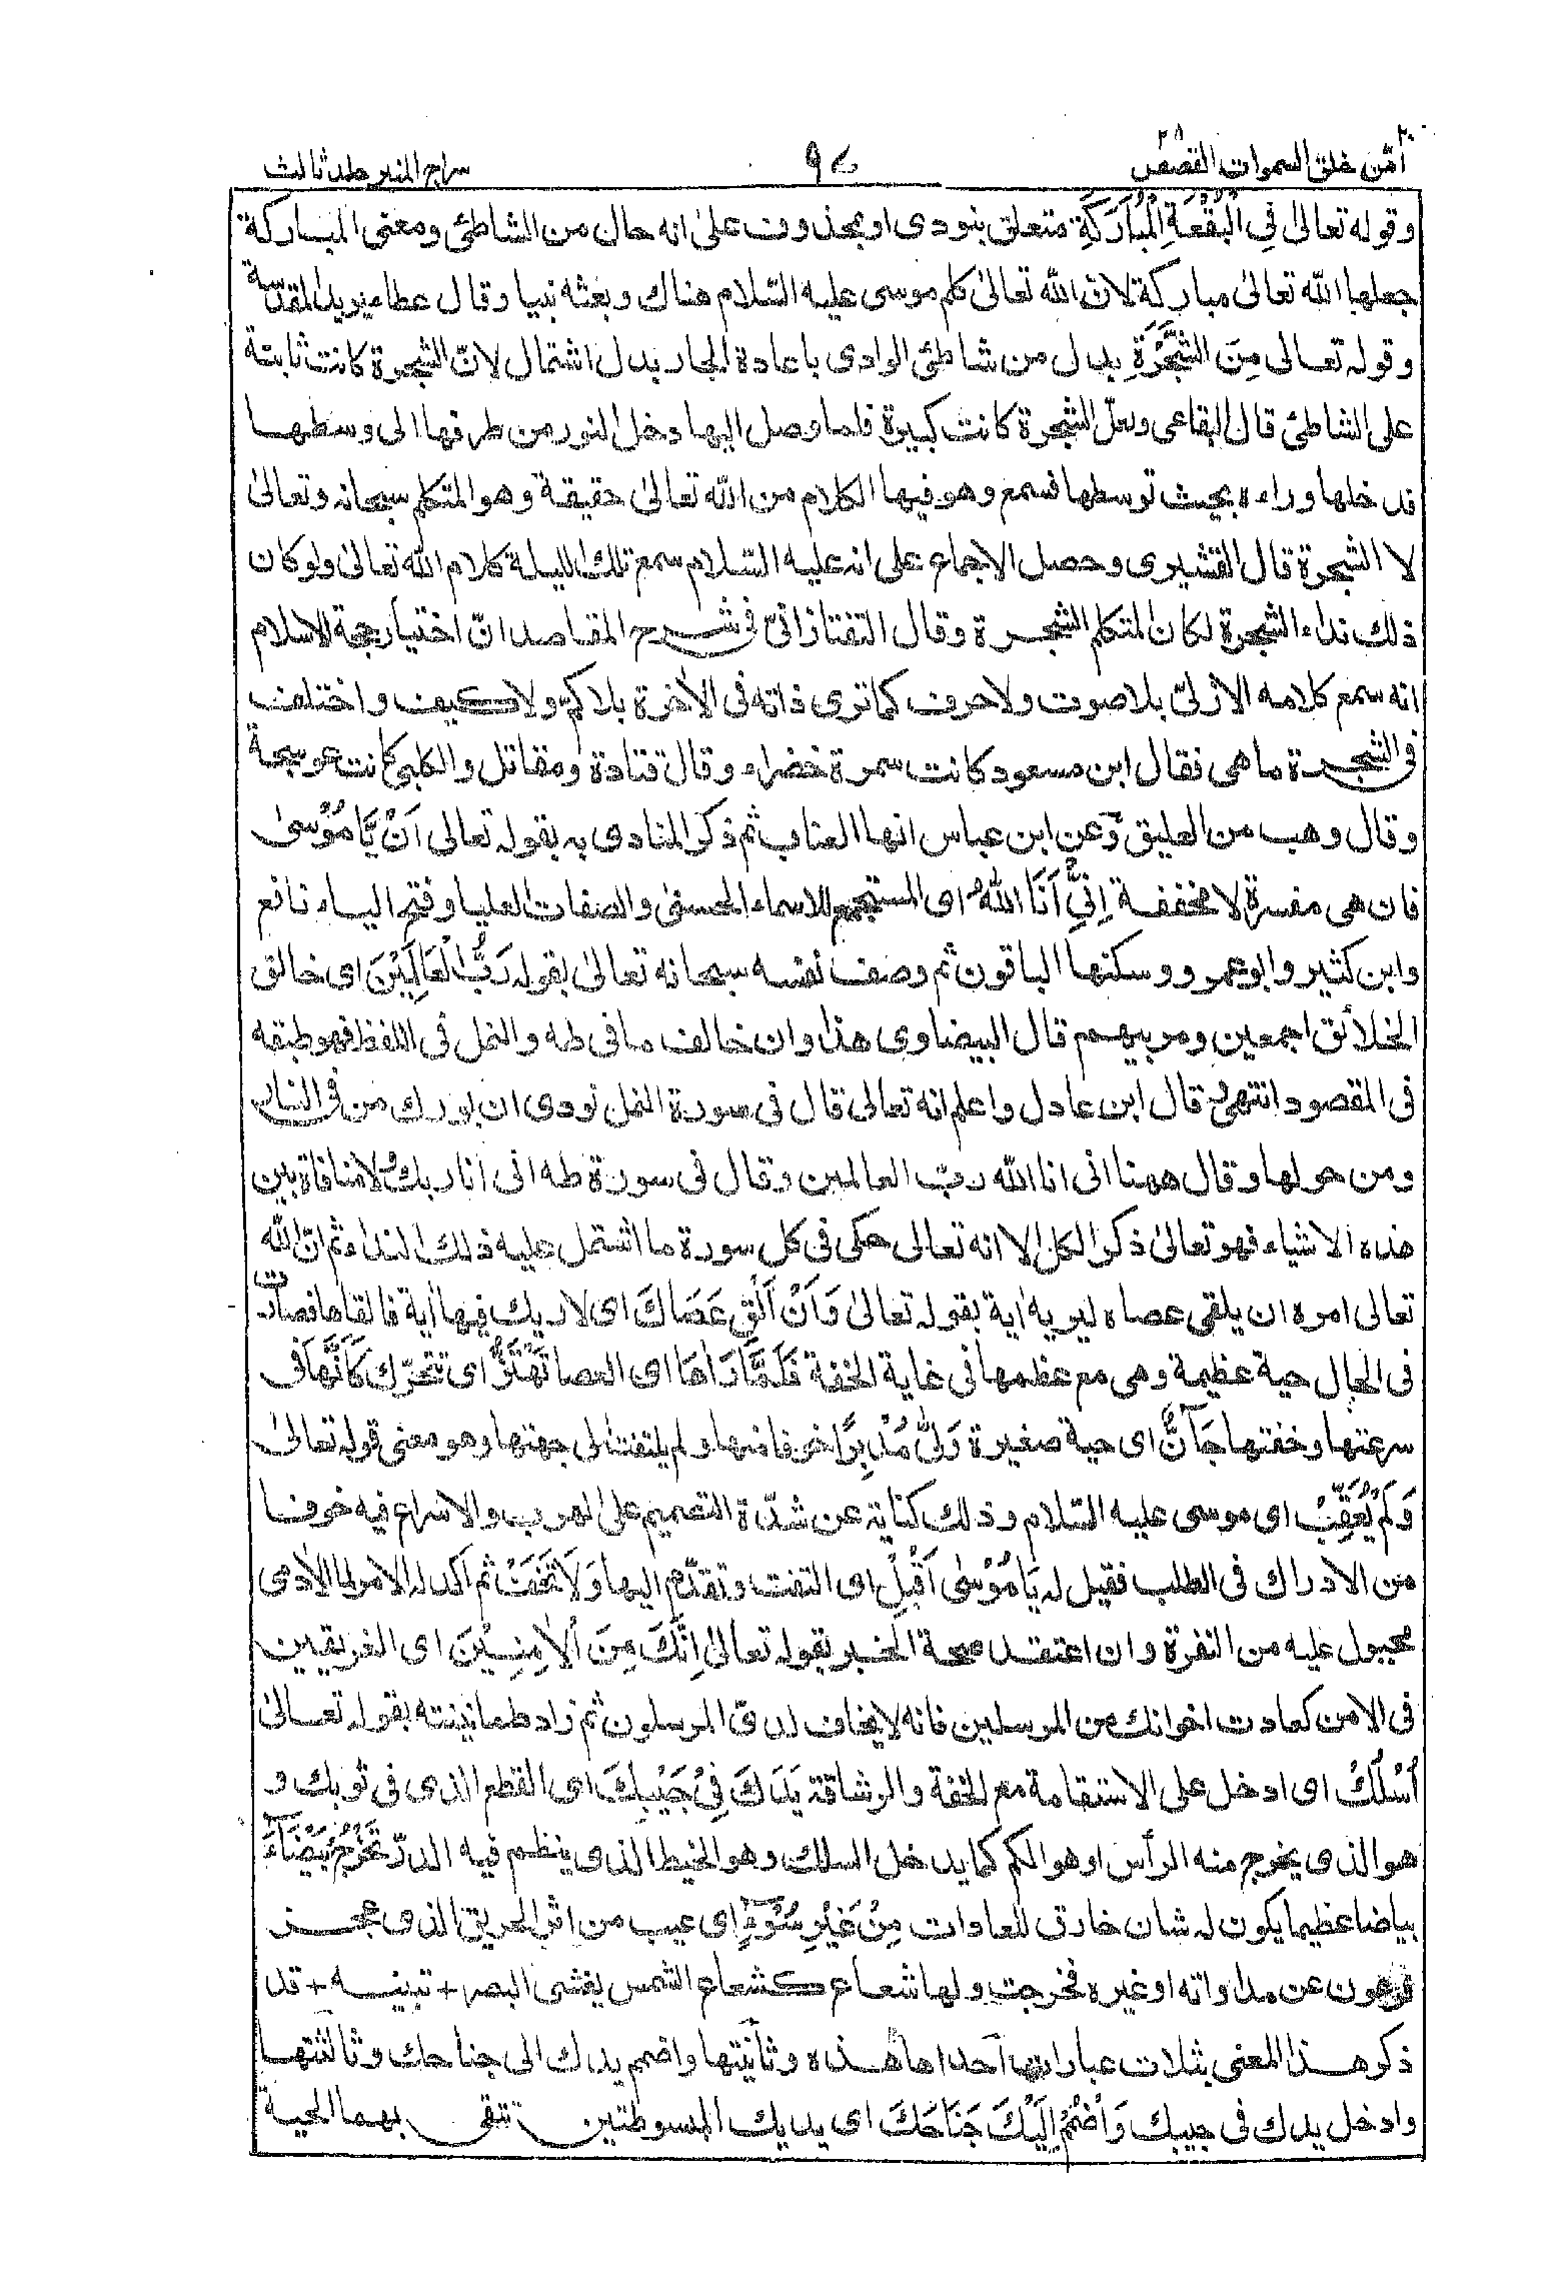 امّن خلق السموات القصص ٢٨
٩٧
سراج المنير جلد ثالث
وقوله تعالىٰ فِي الْبُقْعَةِ الْمُبَارَكَةِ متعلق بنودى او بمحذوف علىٰ انه حال من الشاطئ ومعنى المباركة
جعلها اللّه تعالىٰ مباركة لانّ اللّه تعالىٰ كلم موسى عليه السّلام هناك وبعثه نبيا وقال عطاء يريد المقدّسة
وقوله تعالى مِنَ الشَّجَرَةِ بدل من شاطئ الوادى باعادة الجار بدل اشتمال لانّ الشجرة كانت ثابتة
على الشاطئ قال البقاعى ولعلّ الشجرة كانت كبيرة فلما وصل اليها دخل النور من طرفها الى وسطها
فدخلها وراءه بحيث توسطها فسمع وهو فيها الكلام من اللّه تعالىٰ حقيقة وهو المتكلم سبحانه وتعالىٰ
لا الشجرة قال القشيرى وحصل الاجماع على انه عليه السّلام سمع تلك الليلة كلام اللّه تعالىٰ ولو كان
ذلك نداء الشجرة لكان المتكلم الشجرة وقال التفتازانىّ فى شرح المقاصد انّ اختيار حجة الاسلام
انه سمع كلامه الازلىّ بلا صوت ولا حرف كما ترى ذاته فى الاٰخرة بلا كمّ ولا كيف واختلف
فى الشجرة ما هى فقال ابن مسعود كانت سمرة خضراء وقال قتادة ومقاتل والكلبى كانت عوسجة
وقال وهب من العليق وعن ابن عباس انها العناب ثم ذكر المنادى به بقوله تعالى اَنْ يَّامُوْسىٰ
فان هى مفسرة لا مخففة اِنِّيْ اَنَا اللّٰهُ اى المستجمع للاسماء الحسنىٰ والصفات العليا وفتح الياء نافع
وابن كثير وابو عمرو وسكنها الباقون ثم وصف نفسه سبحانه تعالىٰ بقوله رَبُّ الْعَالَمِيْنَ اى خالق
الخلائق اجمعين ومربيهم قال البيضاوى هذا وان خالف ما فى طه والنمل فى اللفظ فهو طبقه
فى المقصود انتهى قال ابن عادل واعلم انه تعالى قال فى سورة النمل نودى ان بورك من فى النار
ومن حولها وقال ههنا انى انا اللّه ربّ العالمين وقال فى سورة طه انى انا ربك ولا منافاة بين
هذه الاشياء فهو تعالىٰ ذكر الكل الا انه تعالى حكى فى كل سورة ما اشتمل عليه ذلك النداء ثم انّ اللّه
تعالى امره ان يلقى عصاه ليريه اٰية بقوله تعالىٰ وَاَنْ اَلْقِ عَصَاكَ اى لاريك فيها اٰية فالقاها فصارت
فى الحال حية عظيمة وهى مع عظمها فى غاية الخفة فَلَمَّا رَاٰهَا اى العصا تَهْتَزُّ اى تتحرّك كَاَنَّهَا فى
سرعتها وخفتها جَآنٌّ اى حية صغيرة وَلّٰى مُدْبِرًا خوفا منها ولم يلتفت الى جهتها وهو معنى قوله تعالىٰ
وَلَمْ يُعَقِّبْ اى موسى عليه السّلام وذلك كناية عن شدّة التصميم على الهرب والاسراع فيه خوفا
من الادراك فى الطلب فقيل له يَامُوْسٰى اَقْبِلْ اى التفت وتقدّم اليها وَلَا تَخَفْ ثم اكد له الامر لما الاٰدمى
مجبول عليه من النفرة وان اعتقد صحة الخبر بقوله تعالىٰ اِنَّكَ مِنَ الْاٰمِنِيْنَ اى الغريقين
فى الامن كعادت اخوانك من المرسلين فانه لا يخاف لدىّ المرسلون ثم زاد طمانينته بقوله تعالىٰ
اُسْلُكْ اى ادخل على الاستقامة مع الخفة والرشاقة يَدَكَ فِيْ جَيْبِكَ اى القطع الذى فى ثوبك و
هو الذى يخرج منه الرأس او هو الكم كما يدخل السلك وهو الخيط الذى ينظم فيه الدرّ تَخْرُجْ بَيْضَآءَ
بياضا عظيما يكون له شان خارق للعادات مِنْ غَيْرِ سُوْٓءٍ اى عيب من اثر الحريق الذى عجز
فرعون عن مداواته او غيره فخرجت ولها شعاع كشعاع الشمس يغشى البصر + تنبيه + قد
ذكر هذا المعنى بثلاث عبارات احداها هذه وثانيتها واضمم يدك الى جناحك وثالثتها
وادخل يدك فى جيبك وَاضْمُمْ اِلَيْكَ جَنَاحَكَ اى يديك المبسوطتين تتقى بهما الحية